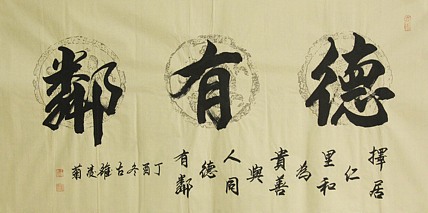 德有鄰
擇居
仁
里和
為
貴善
與
人同
德
有鄰
丁酉冬古雍凌菊